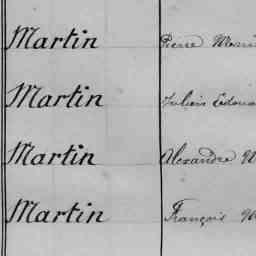 Martin Pierre
Martin Julien
Martin Alexandre
Martin François